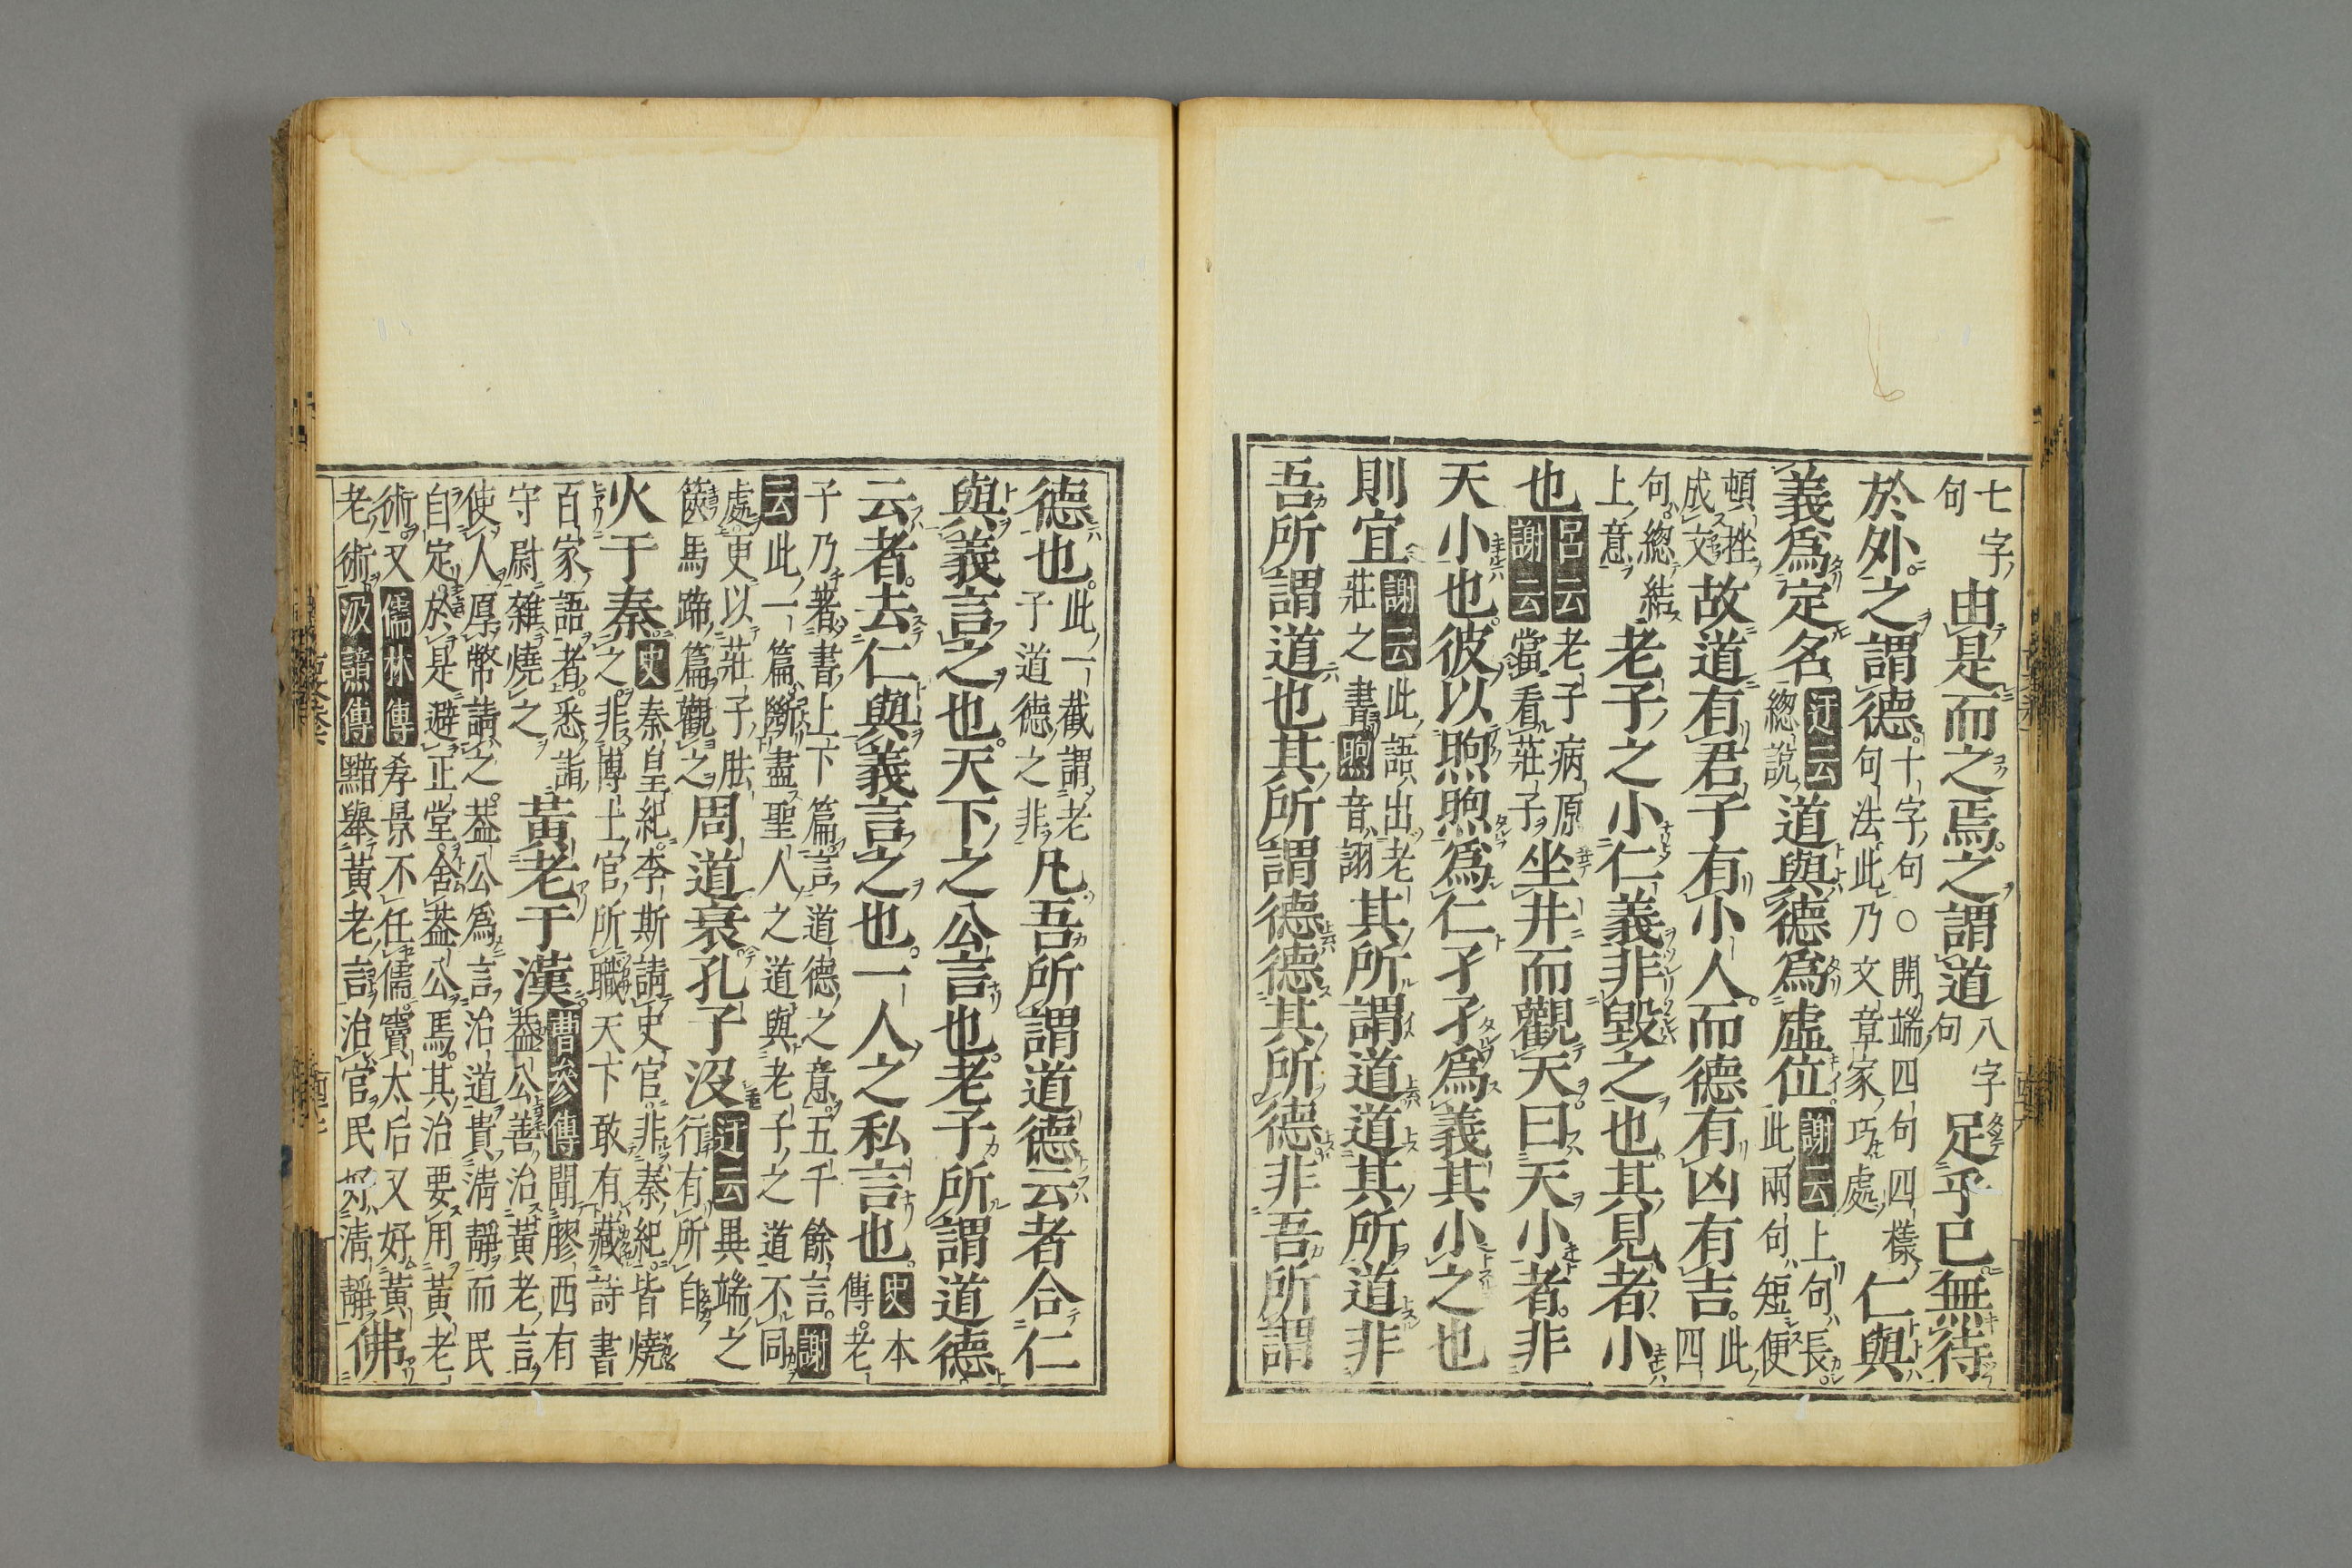 七字句由是而之焉之謂道八字句足乎已無待
於外之謂德十字句○開端四句四樣句法此乃文章家巧處仁與
義爲定名迂云總說道與德爲虛位謝云上句長此兩句短便
頓挫成文故道有君子有小人而德有凶有吉此四
句總結上意老子之小仁義非毀之也其見者小
也呂云老子病原謝云當看莊子坐井而觀天曰天小者非
天小也彼以煦煦爲仁孑孑爲義其小之也
則宜謝云此語出老莊之書煦音詡其所謂道道其所道非
吾所謂道也其所謂德德其所德非吾所謂
德也此一截謂老子道德之非凡吾所謂道德云者合仁
與義言之也天下之公言也老子所謂道德
云者去仁與義言之也一人之私言也史本傳老
子乃著書上下篇言道德之意五千餘言謝云此一篇斷盡聖人之道與老子之道不同
處更以莊子胠篋馬蹄篇觀之周道衰孔子沒迂云異端之行有所自
火于秦史秦皇紀李斯請史官非秦紀皆燒之非博士官所職天下敢有藏詩書
百家語者悉詣守尉雜燒之黃老于漢曹參傳聞膠西有葢公善治黃老言
使人厚幣請之葢公爲言治道貴淸靜而民自定於是避正堂舍葢公焉其治要用黃老
術又儒林傳孝景不任儒竇太后又好黃老術汲黯傳黯舉黃老言治官民好淸靜佛